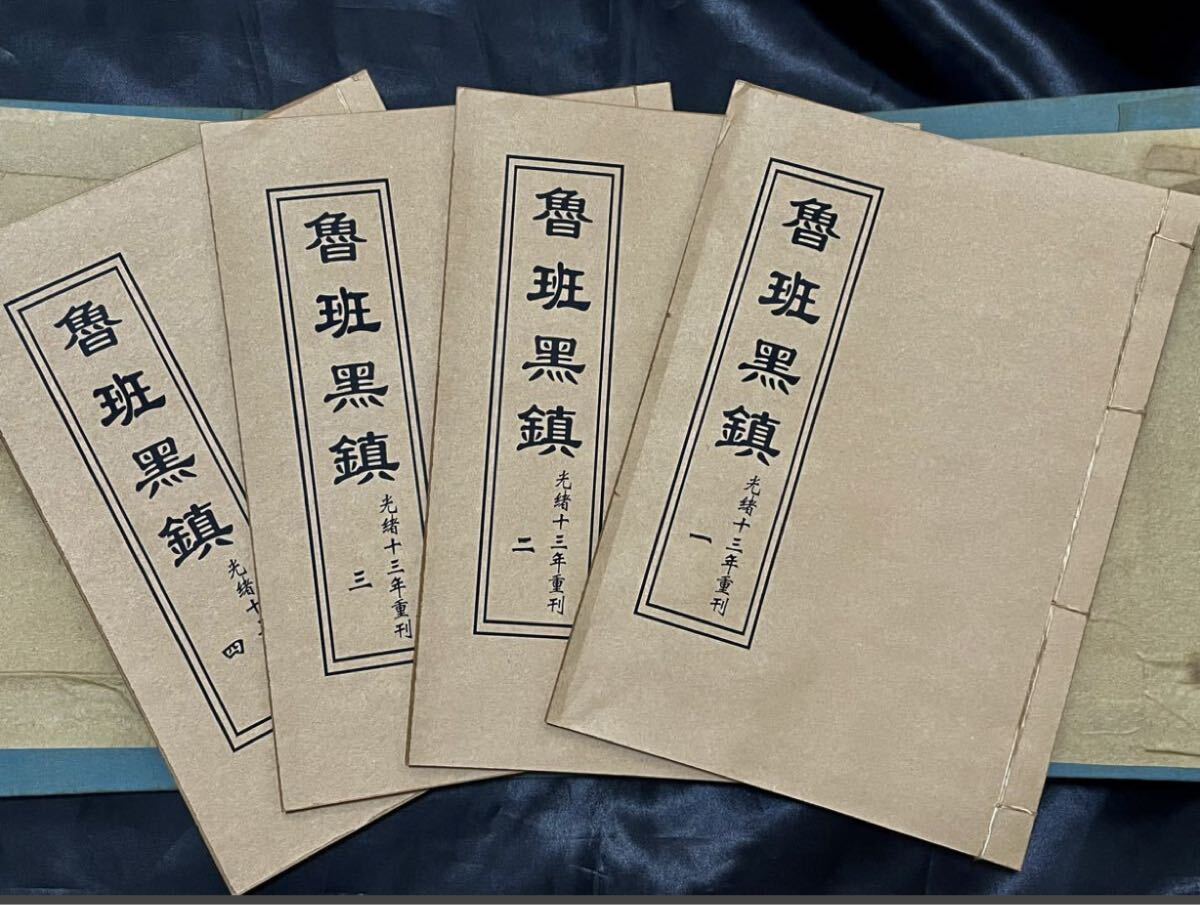 魯班黑鎮
光緒十三年重刊
一
魯班黑鎮
光緒十三年重刊
二
魯班黑鎮
光緒十三年重刊
三
魯班黑鎮
光緒十
四